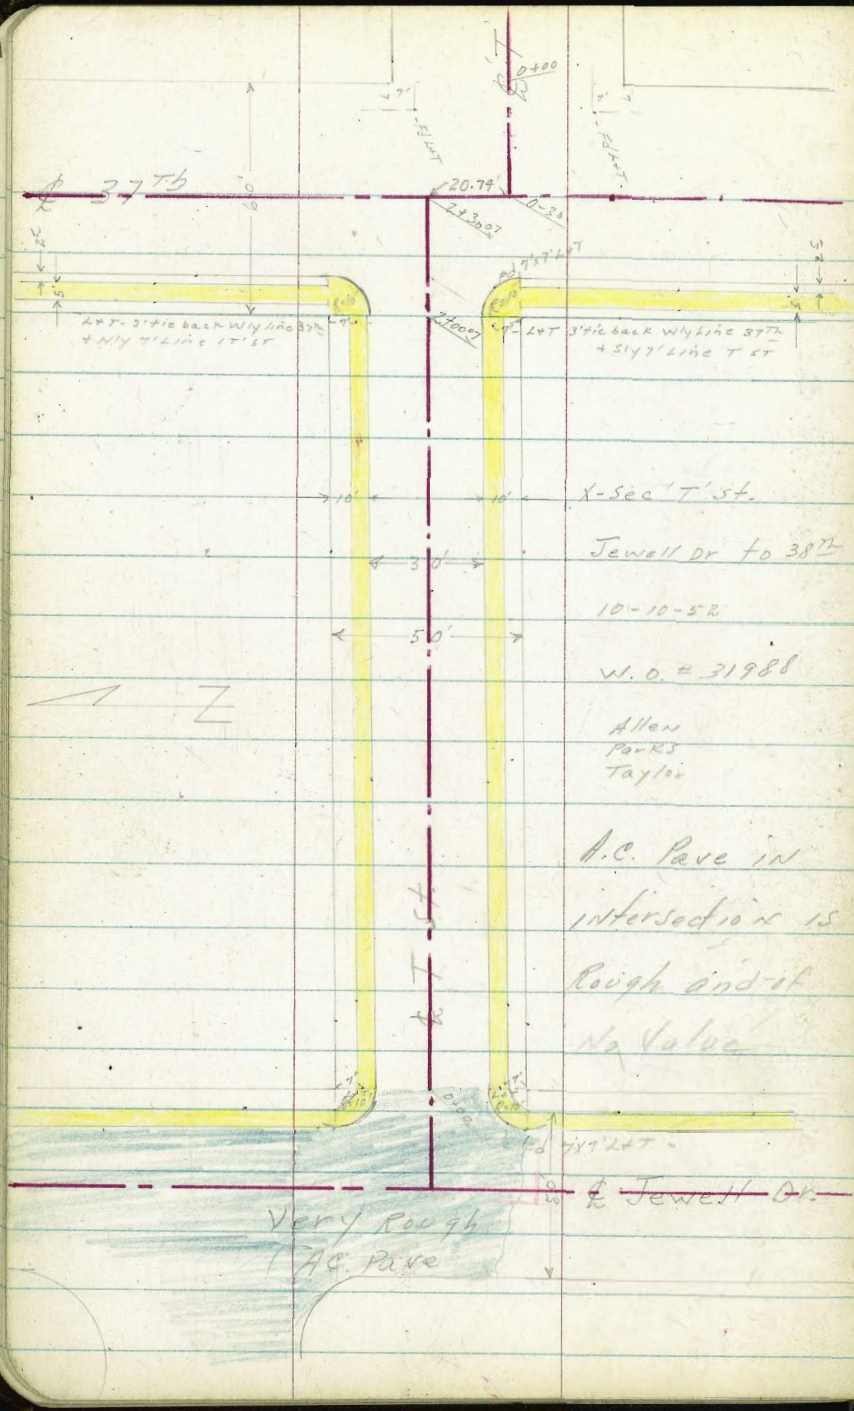 ℄ T'
0+00
7'
7'
7'
- Fd L+T
- Fd L+T.
℄ 37Th
60'
20.74'
2+30.07
0-30
Fd 7'x7' L+T
32
5'
R=10
R=10
32
5'
7'
2+00.07
7'
L+T - 3' tie back Wly Line 37Th
+ Nly 7' Line 'T' ST
L+T 3' tie back Wly Line 37Th
+ Sly 7' Line T ST
10'
10'
X-Sec 'T' St.
30'
Jewell Dr to 38Th
50'
10-10-52
W.O. # 31988
Z
Allen
Parks
Taylor
A.C. Pave in
℄ T St.
intersection is
Rough and of
No Value
R=10
0+00
R=10
Fd 7'x7' L+T
50
℄ Jewell Dr.
Very Rough
A.C. Pave